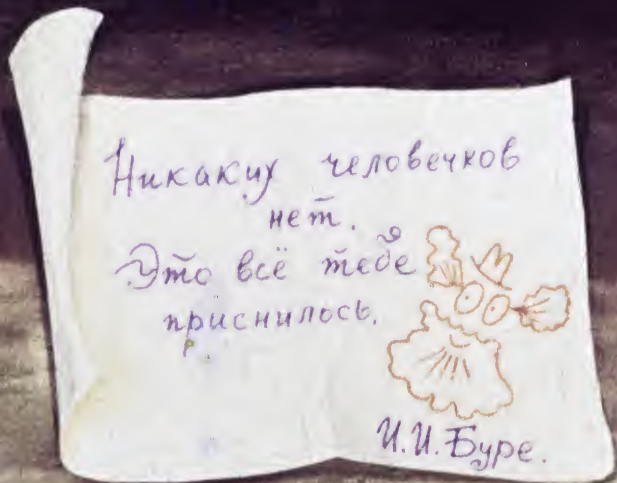 Никаких человечков
нет.
Это всё тебе
приснилось.
И.И.Буре.